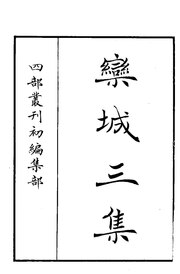 欒城三集
四部叢刊初編集部